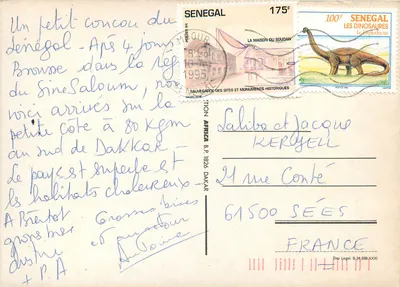 Un petit coucou du
Sénégal - Aps 4 jours
Brousse dans la reg
du Sine Saloum, nous
voici arrivés sur la
petite côte à 80 kgm
au sud de Dakkar -
Le pays est superbe et
les habitants chaleureux -
A Bientôt
Grosses bises
et
+ P.A
SENEGAL 175F
LA MAISON DU SOUDAN
SAUVEGARDE DES SITES ET MONUMENTS HISTORIQUES
100F SENEGAL
LES DINOSAURES
1995
AFRICA B.P. 1826 DAKAR
et Jacque
21 rue Conté
61500 SÉES
FRANCE